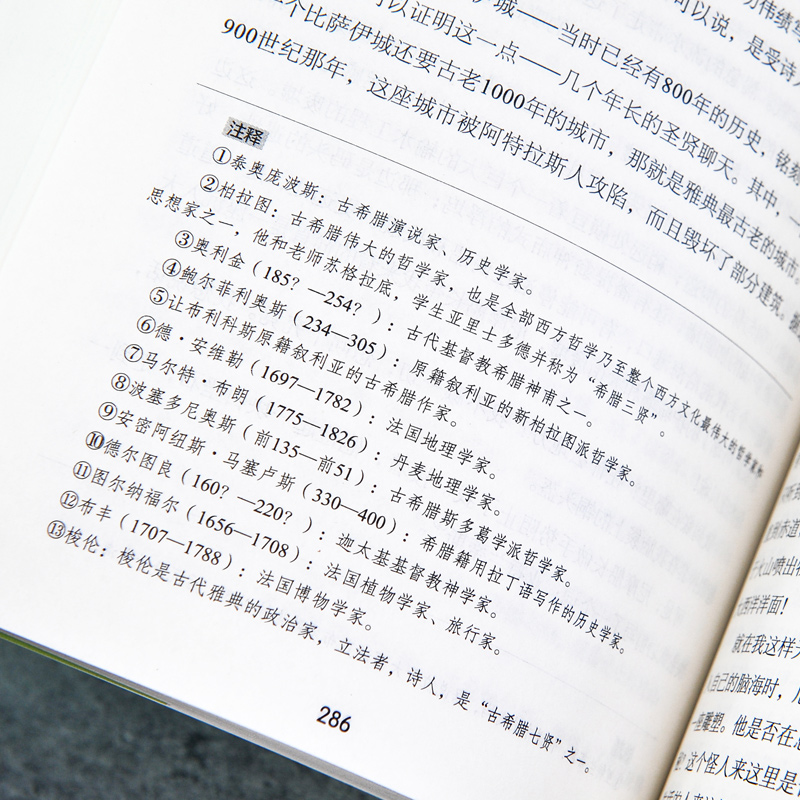 可以说，是受诗
伊城——当时已经有800年的历史，铭刻
以证明这一点——几个年长的圣贤聊天。其中，一
个比萨伊城还要古老1000年的城市，那就是雅典最古老的城市。
900世纪那年，这座城市被阿特拉斯人攻陷，而且毁坏了部分建筑。
注释
①泰奥庞波斯：古希腊演说家、历史学家。
②柏拉图：古希腊伟大的哲学家，也是全部西方哲学乃至整个西方文化最伟大的哲学家和
思想家之一，他和老师苏格拉底，学生亚里士多德并称为“希腊三贤”。
③奥利金（185？—254？）：古代基督教希腊神甫之一。
④鲍尔菲利奥斯（234—305）：原籍叙利亚的新柏拉图派哲学家。
⑤让布利科斯原籍叙利亚的古希腊作家。
⑥德·安维勒（1697—1782）：法国地理学家。
⑦马尔特·布朗（1775—1826）：丹麦地理学家。
⑧波塞多尼奥斯（前135—前51）：古希腊斯多葛学派哲学家。
⑨安密阿纽斯·马塞卢斯（330—400）：希腊籍用拉丁语写作的历史学家。
⑩德尔图良（160？—220？）：迦太基基督教神学家。
⑪图尔纳福尔（1656—1708）：法国植物学家、旅行家。
⑫布丰（1707—1788）：法国博物学家。
⑬梭伦：梭伦是古代雅典的政治家，立法者，诗人，是“古希腊七贤”之一。
286
火山喷出
大西洋洋面！
就在我这样
自己的脑海时，
一座雕塑。他是否在
这个怪人来这里是